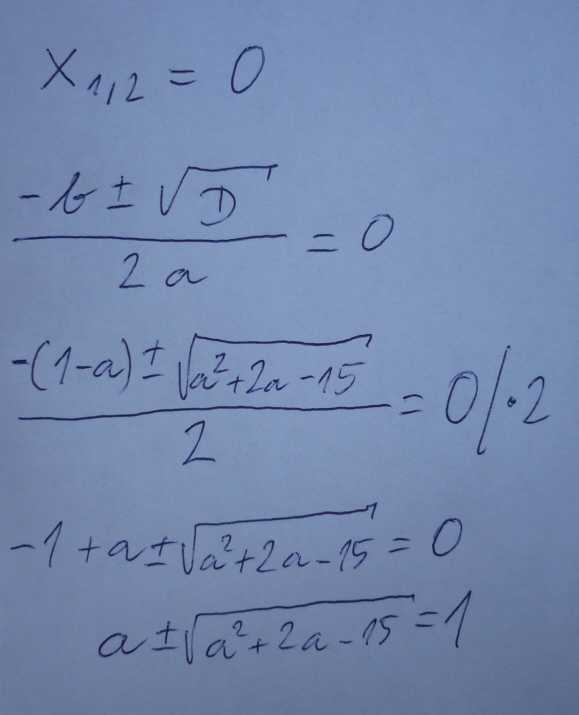 x₁,₂ = 0
(-b ± √D) / (2a) = 0
(-(1-a) ± √(a²+2a-15)) / 2 = 0 /·2
-1+a ± √(a²+2a-15) = 0
a ± √(a²+2a-15) = 1